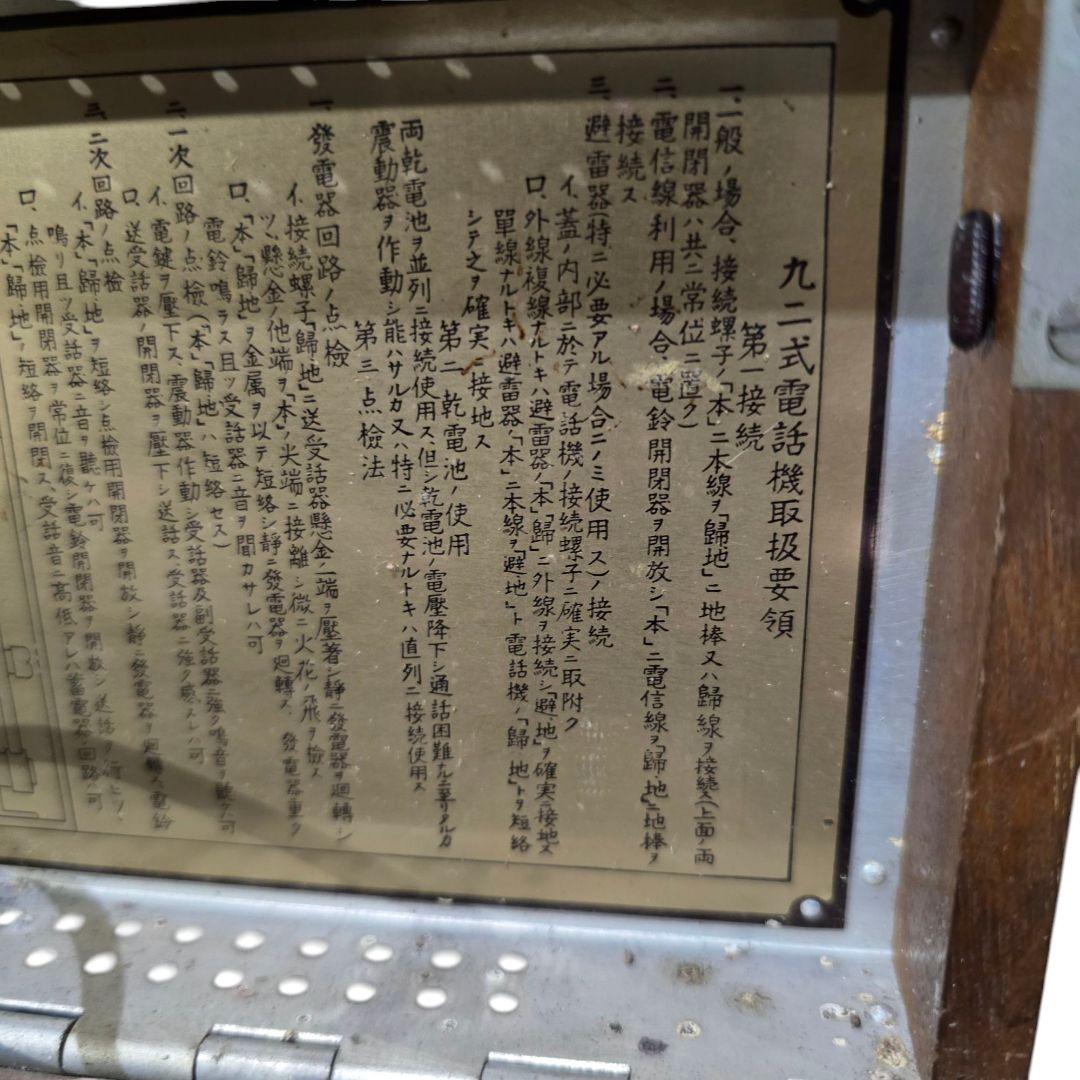 九二式電話機取扱要領
第一 接続
一、一般ノ場合、接続螺子ノ「本」ニ本線ヲ「歸地」ニ地棒又ハ歸線ヲ接続ス(上面ノ両
開閉器ハ共ニ常位ニ置ク)
二、電信線利用ノ場合、電鈴開閉器ヲ開放シ「本」ニ電信線ヲ「歸・地」ニ地棒ヲ
接続ス
三、避雷器(特ニ必要アル場合ニノミ使用ス)ノ接続
イ、蓋ノ内部ニ於テ電話機ノ接続螺子ニ確実ニ取附ク
ロ、外線複線ナルトキハ避雷器ノ「本」「歸」ニ外線ヲ接続シ「避・地」ヲ確実ニ接地ス
單線ナルトキハ避雷器ノ「本」ニ本線ヲ「避・地」ト電話機ノ「歸・地」トヲ短絡
シテ之ヲ確実ニ接地ス
第二 乾電池ノ使用
両乾電池ヲ並列ニ接続使用ス、但シ乾電池ノ電壓降下シ通話困難ナルニ至リタルカ
震動器ヲ作動シ能ハサルカ又ハ特ニ必要ナルトキハ直列ニ接続使用ス
第三 点檢法
一、發電器回路ノ点檢
イ、接続螺子「歸・地」ニ送受話器懸金ノ一端ヲ壓著シ靜ニ發電器ヲ廻轉シ
ツツ懸金ノ他端ヲ「本」ノ尖端ニ接離シ微ニ火花ノ飛ヲ檢ス
ロ、「本」「歸・地」ヲ金属ヲ以テ短絡シ靜ニ發電器ヲ廻轉ス、發電器重ク
電鈴鳴ラス且ツ受話器ニ音ヲ聞カサレハ可
二、一次回路ノ点檢(「本」「歸地」ハ短絡セス)
イ、電鍵ヲ壓下ス、震動器作動シ受話器及副受話器ニ強ク鳴音ヲ聽ケハ可
ロ、送受話器ノ開閉器ヲ壓下シ送話ス受話器ニ強ク感スレハ可
三、二次回路ノ点檢
イ、「本」「歸・地」ヲ短絡シ点檢用開閉器ヲ開放シ靜ニ發電器ヲ廻轉ス電鈴
鳴リ且ツ受話器ニ音ヲ聽ケハ可
ロ、点檢用開閉器ヲ常位ニ復シ電鈴開閉器ヲ開放シ送話ヲ行ヒツツ
「本」「歸・地」ノ短絡ヲ開閉ス、受話音ニ高低アレハ蓄電器ノ回路ハ可